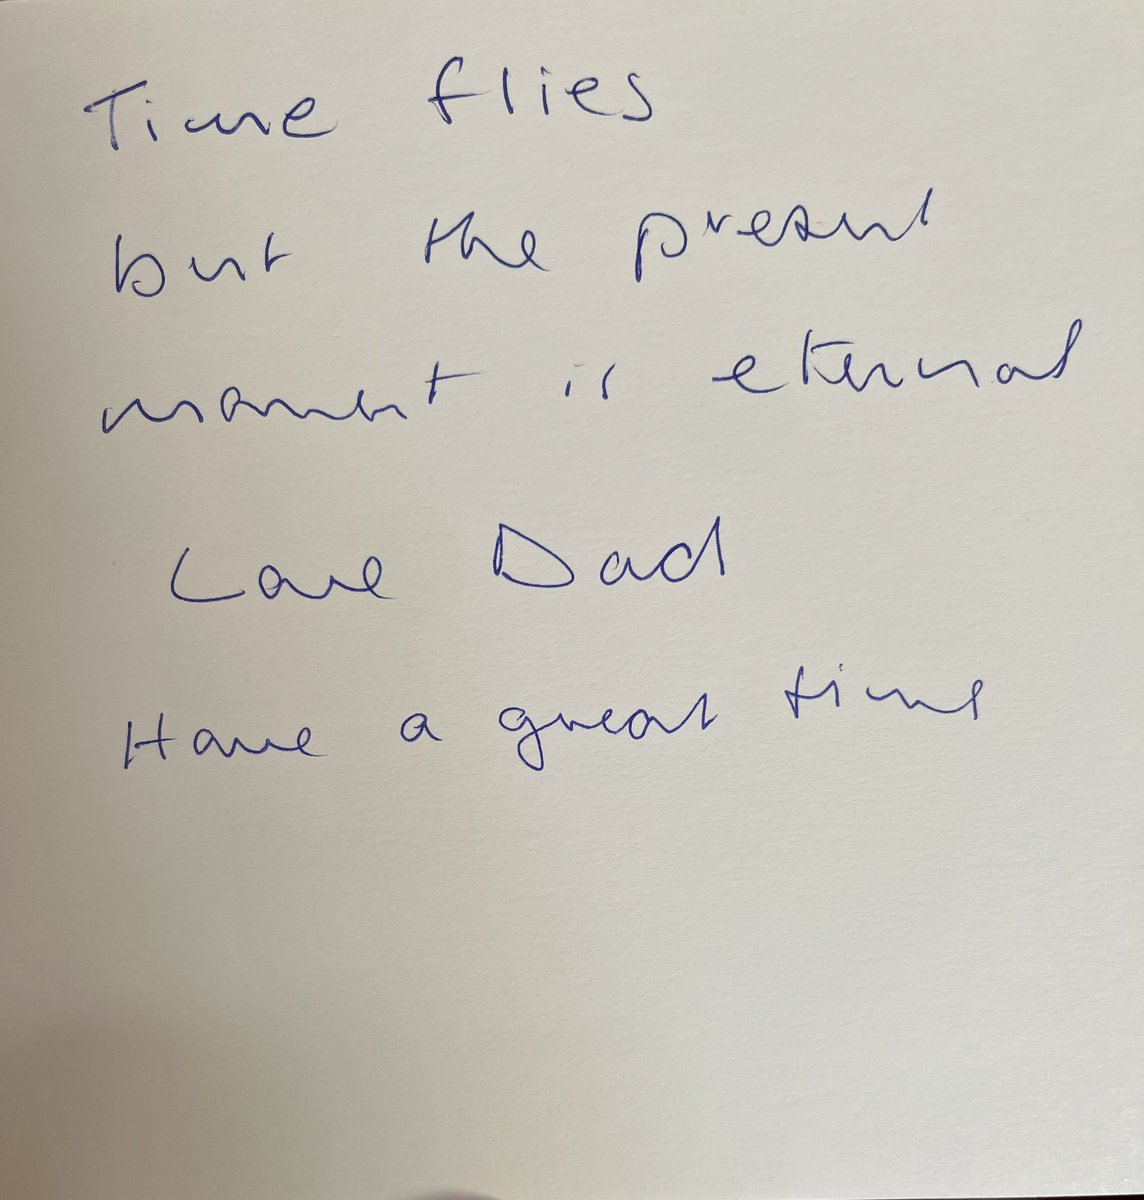 Time flies
but the present
moment is eternal
Love Dad
Have a great time